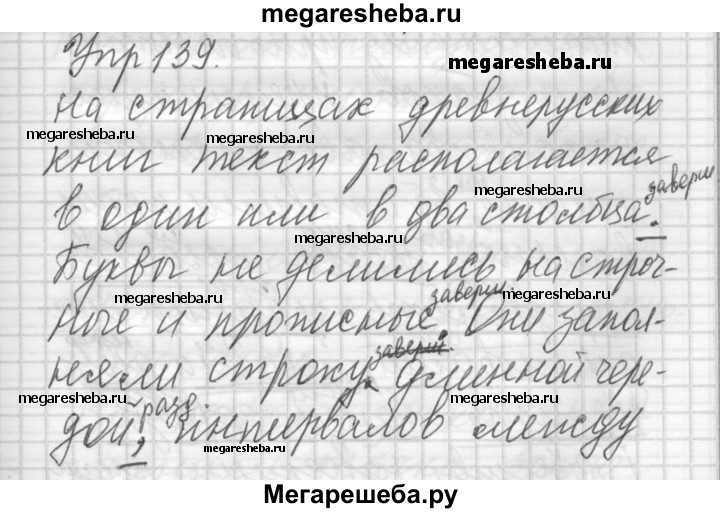 megaresheba.ru
Упр 139.
megaresheba.ru
на страницах древнерусских
megaresheba.ru megaresheba.ru megaresheba.ru
книг текст располагается
заверш
megaresheba.ru
в один или в два столбца.
megaresheba.ru
Буквы не делились на строч-
megaresheba.ru заверш. megaresheba.ru
ные и прописные. Они запол-
заверш.
няли строку длинной чере-
megaresheba.ru разд megaresheba.ru
дой, интервалов между
megaresheba.ru
Мегарешеба.ру